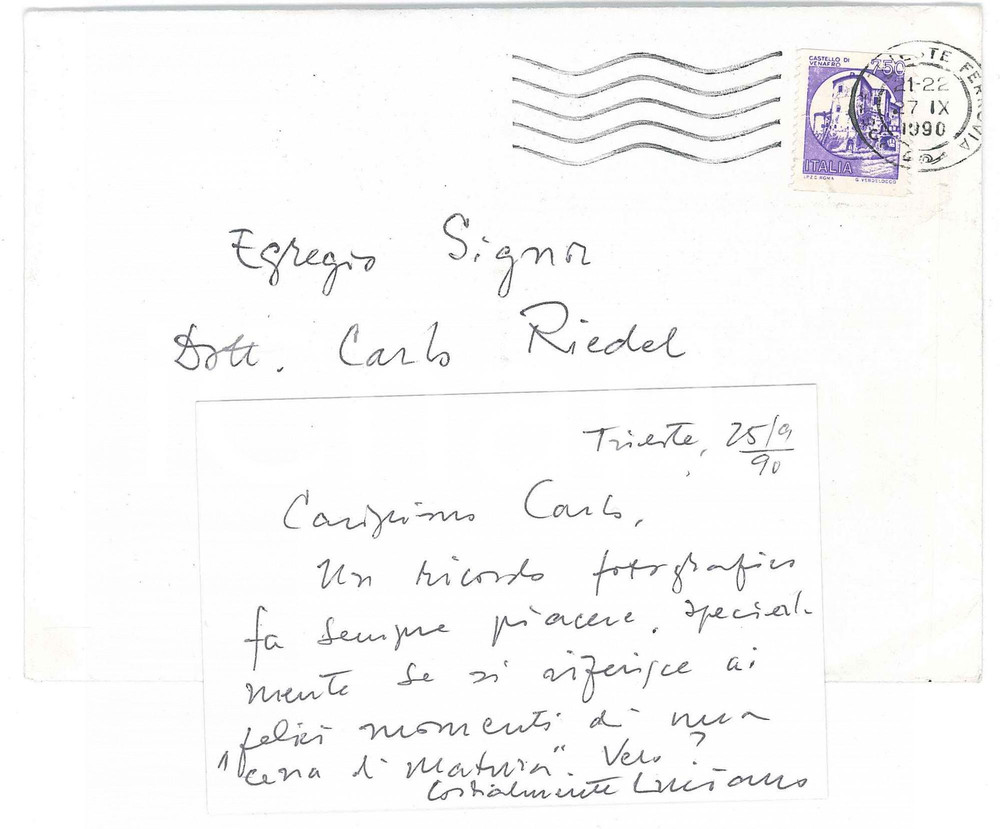 CASTELLO DI
VENAFRO
750
ITALIA
I.P.Z.S. ROMA G. VERDELOCCO
TRIESTE FERROVIA
21-22
27 IX
1990
Egregio Signor
Dott. Carlo Riedel
Trieste, 25/9
90
Carissimo Carlo,
Un ricordo fotografico
fa sempre piacere, special-
mente se si riferisce ai
felici momenti di una
"cena di Maturia". Vero?
Cordialmente Luciano